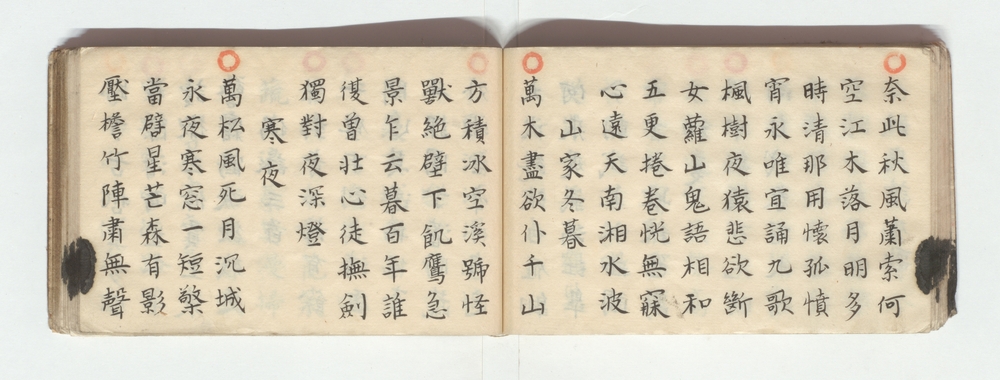 奈此秋風蕭索何
空江木落月明多
時清那用懷孤憤
宵永唯宜誦九歌
楓樹夜猿悲欲斷
女蘿山鬼語相和
五更捲卷恍無寐
心遠天南湘水波
山家冬暮
萬木盡欲仆千山
方積冰空溪號怪
獸絶壁下飢鷹急
景乍云暮百年誰
復曾壯心徒撫劍
獨對夜深燈
寒夜
萬松風死月沉城
永夜寒窓一短檠
當檗星芒森有影
壓檐竹陣肅無聲